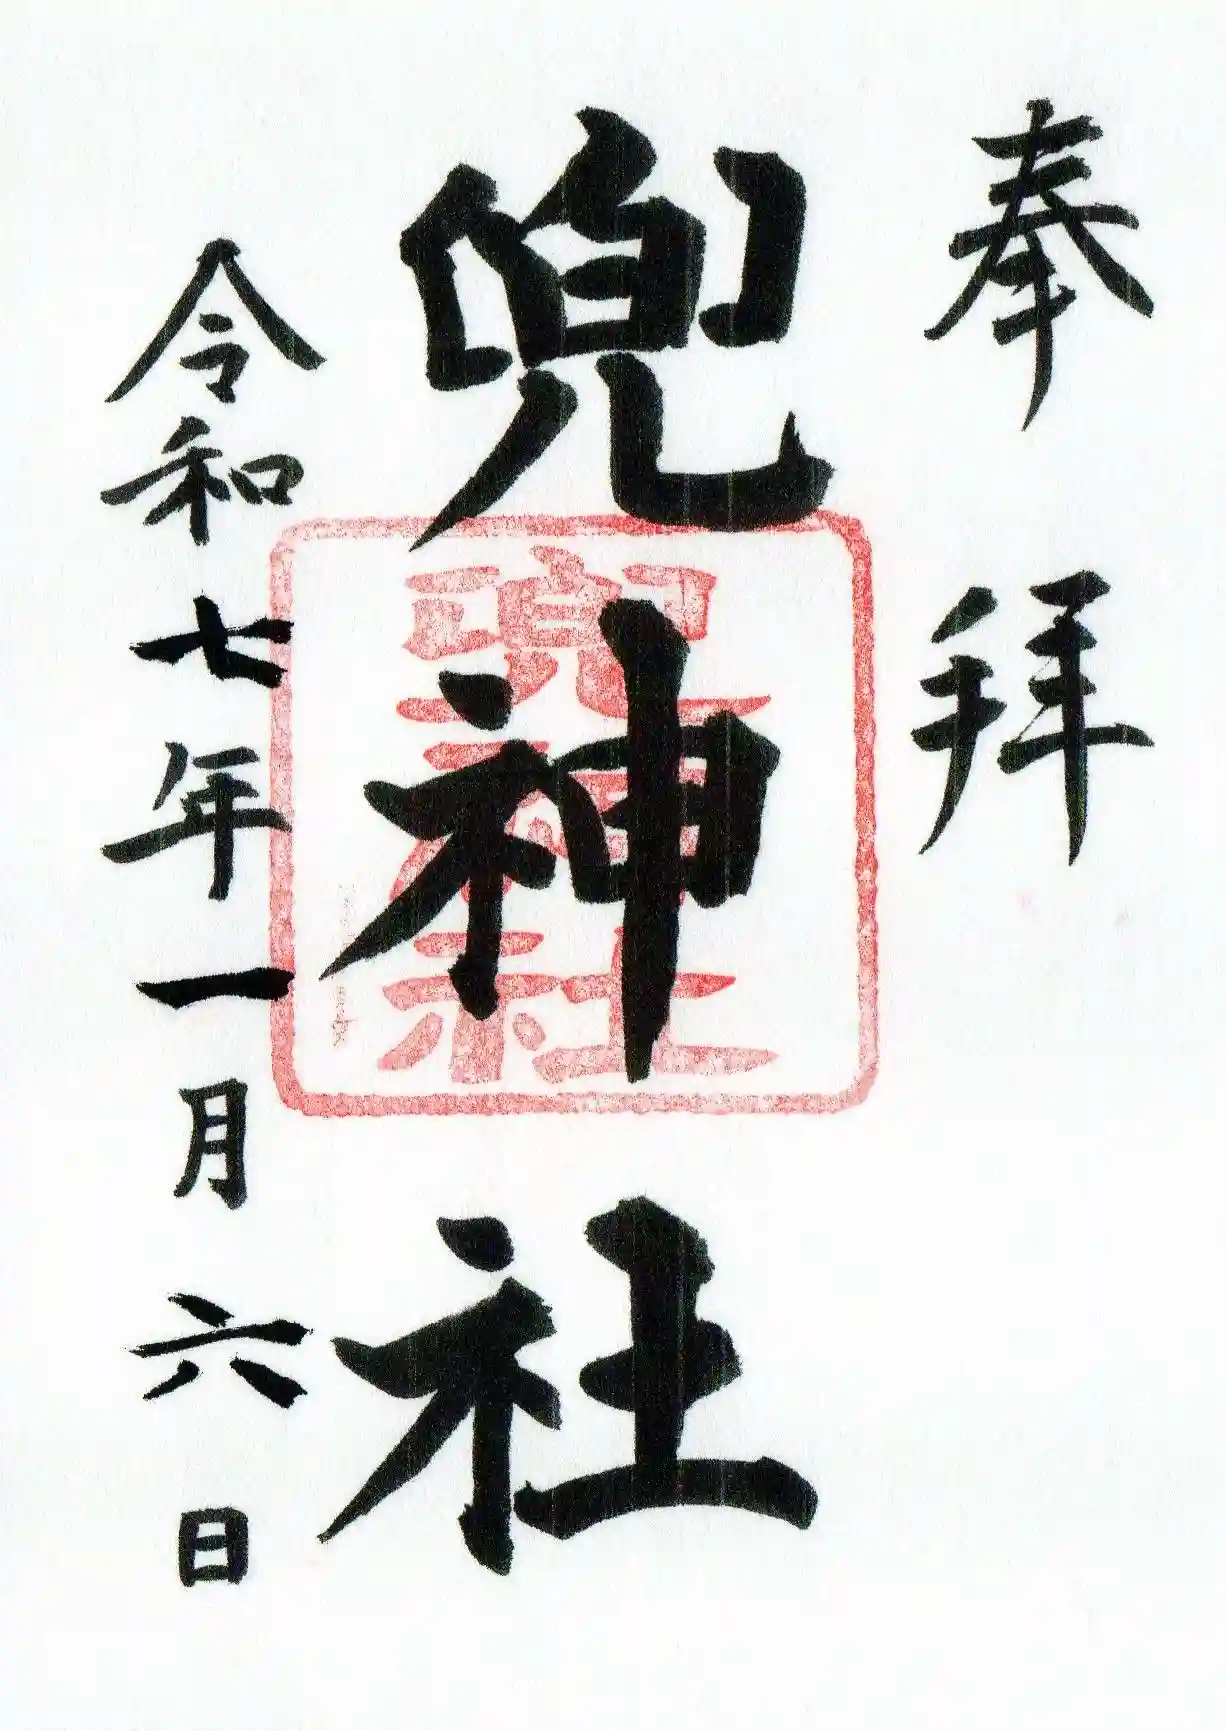 奉拜
兜神社
兜神社
令和七年一月六日